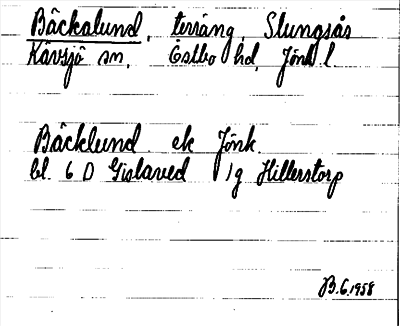 Bäckalund, terräng, Slungsås
Kävsjö sn, Östbo hd, Jönk l.
Bäcklund ek Jönk
bl. 6 D Gislaved 1g Hillerstorp
JB.6.1958